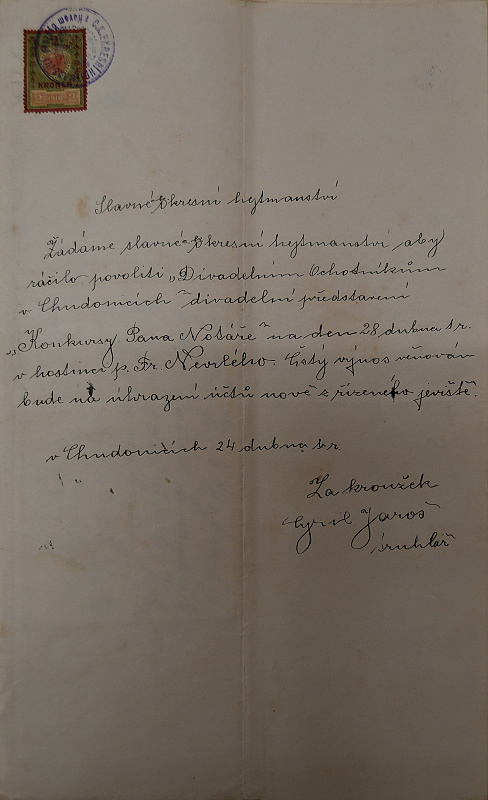 KRONEN
2 1919 2
Slavné Okresní hejtmanství
Žádáme slavné Okresní hejtmanství aby
ráčilo povoliti „Divadelním Ochotníkům
v Chudonicích" divadelní představení
„Konkursy Pana Notáře" na den 28 dubna t.r.
v hostinci p. Fr. Nevrlého. Čistý výnos věnován
bude na úhrazení účtů nově z řízeného jeviště.
v Chudonicích 24 dubna t.r.
Za kroužek
Cyril Jaroš
truhlář